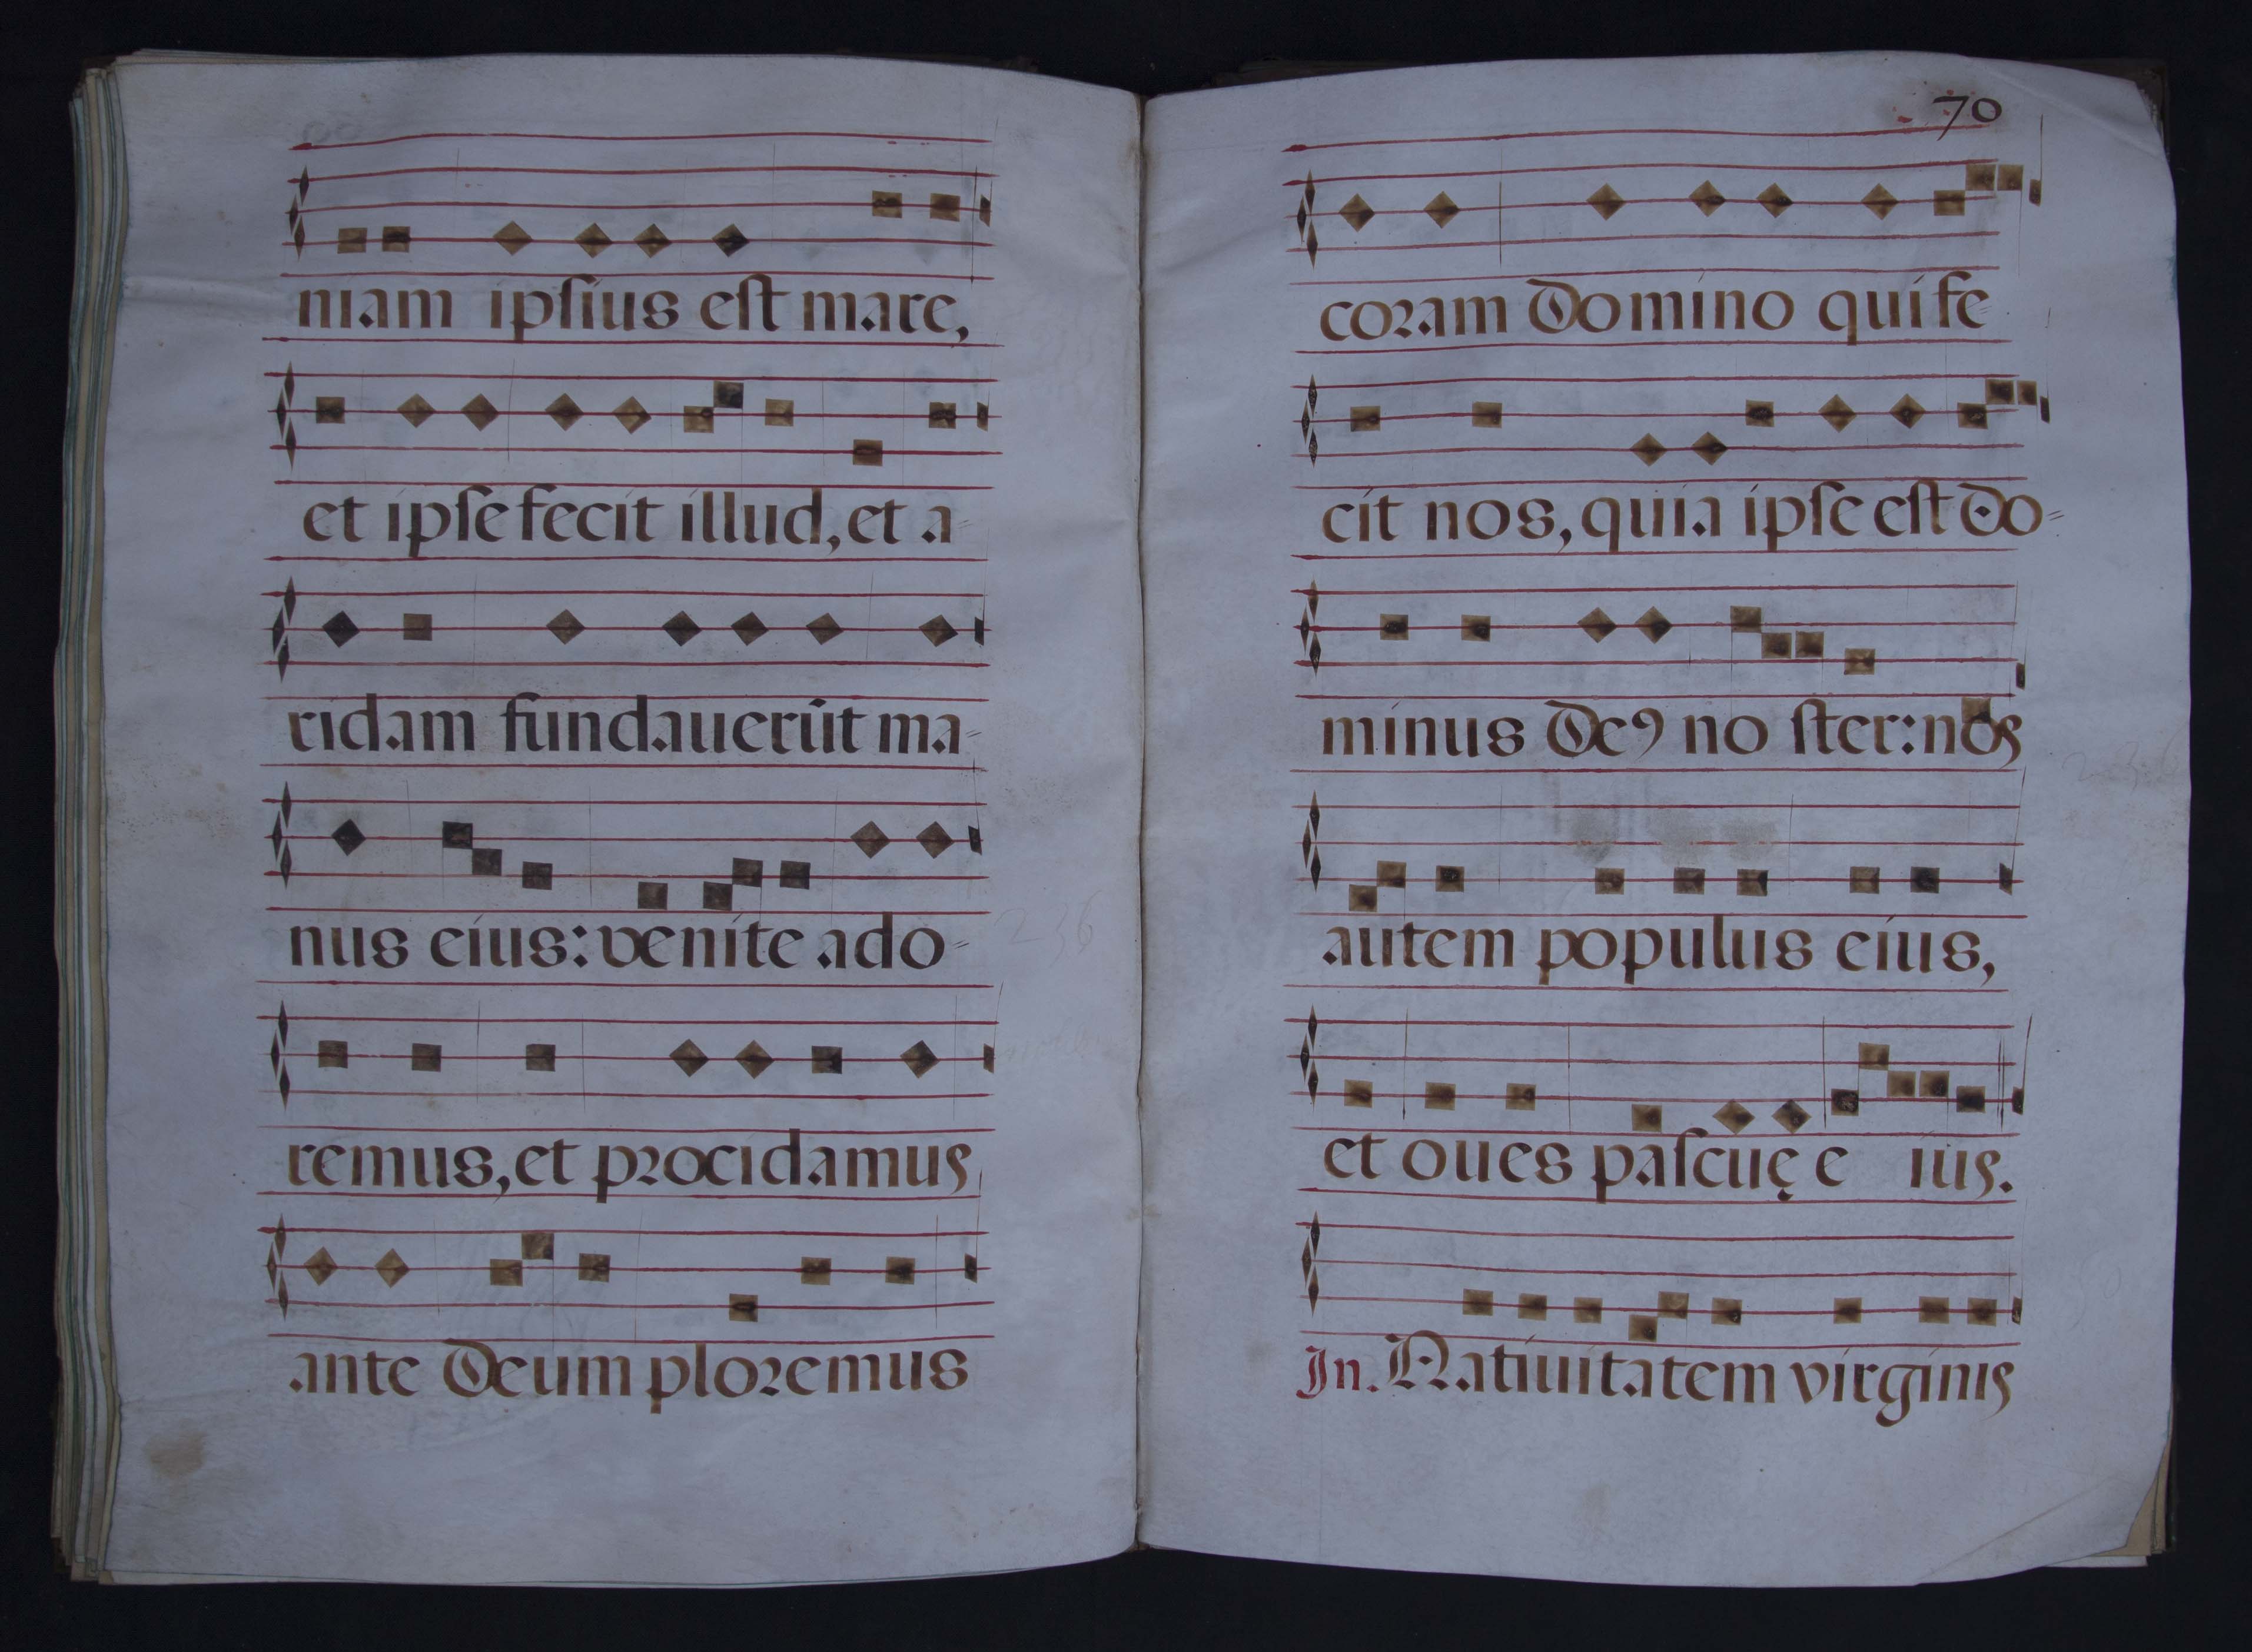 niam ipſius eſt mare,
et ipſe fecit illud, et a=
ridam fundauerũt ma=
nus eius: venite ado=
remus, et procidamus
ante Deum ploremus
70
coram Domino qui fe=
cit nos, quia ipſe eſt Do=
minus Deꝯ no ſter: nos
autem populus eius,
et oues paſcuę e ius.
In. Natiuitatem virginis